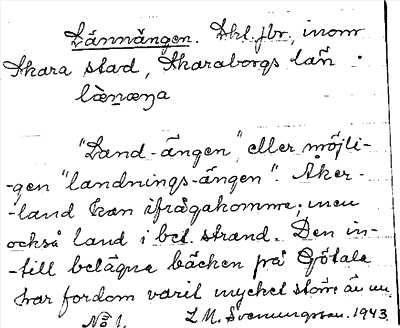 Lännängen. Dhl. jbr., inom
Skara stad, Skaraborgs län.
lænæŋa
"Land-ängen", eller möjli-
-gen "landnings-ängen". Åker-
-land kan ifrågakomma; men
också land i bet. strand. Den in-
-till belägna bäcken på Götala
har fordom varit mycket större än nu.
No 1. L. M. Svenungsson. 1943.